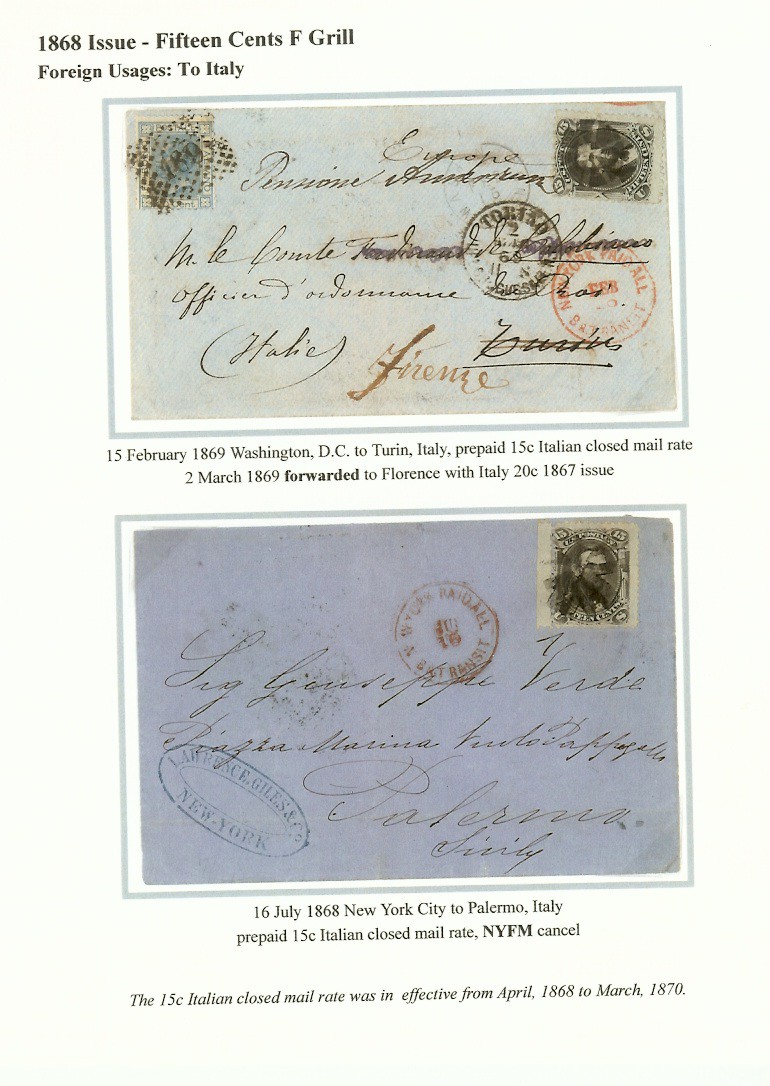 1868 Issue - Fifteen Cents F Grill
Foreign Usages: To Italy
Europe
Pensione
M. le Comte Ferdinand de
Officier d'ordonnance
(Italie)
Turin
Firenze
189
TORINO
2
PAID ALL
FEB
BR TRANSIT
15 February 1869 Washington, D.C. to Turin, Italy, prepaid 15c Italian closed mail rate
2 March 1869 forwarded to Florence with Italy 20c 1867 issue
15 15
N. YORK PAID ALL
JUL
16
BR TRANSIT
Sig Giuseppe Verde
Piazza Marina
Palermo
Sicily
LAWRENCE, GILES & CO
NEW-YORK
16 July 1868 New York City to Palermo, Italy
prepaid 15c Italian closed mail rate, NYFM cancel
The 15c Italian closed mail rate was in effective from April, 1868 to March, 1870.